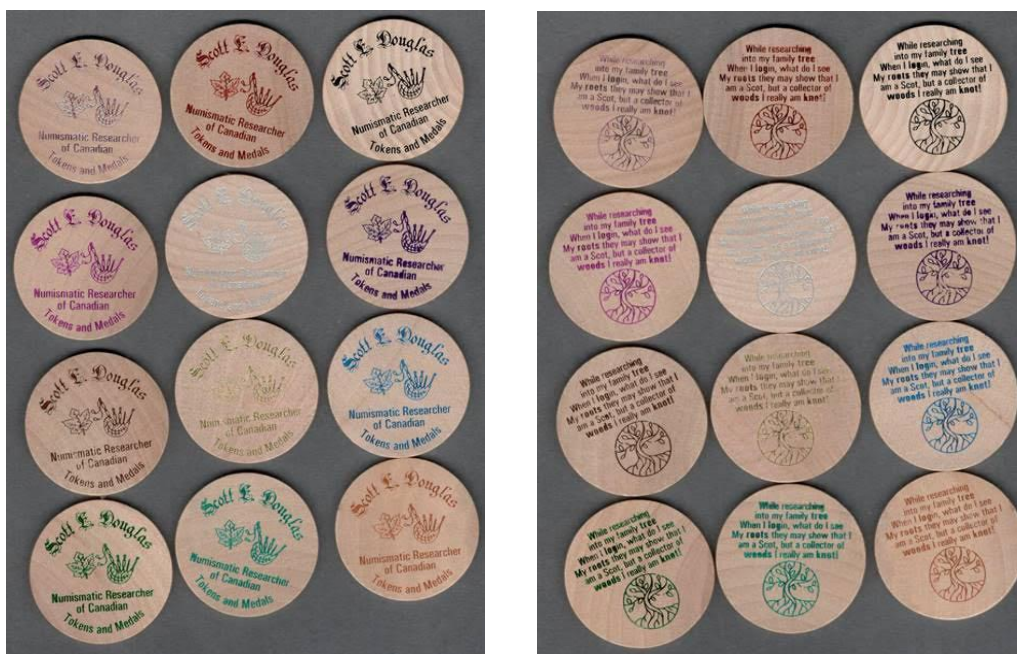 Scott E. Douglas
Numismatic Researcher
of Canadian
Tokens and Medals
Scott E. Douglas
Numismatic Researcher
of Canadian
Tokens and Medals
Scott E. Douglas
Numismatic Researcher
of Canadian
Tokens and Medals
Scott E. Douglas
Numismatic Researcher
of Canadian
Tokens and Medals
Scott E. Douglas
Scott E. Douglas
Numismatic Researcher
of Canadian
Tokens and Medals
Scott E. Douglas
Numismatic Researcher
of Canadian
Tokens and Medals
Scott E. Douglas
Numismatic Researcher
of Canadian
Tokens and Medals
Scott E. Douglas
Numismatic Researcher
of Canadian
Tokens and Medals
Scott E. Douglas
Numismatic Researcher
of Canadian
Tokens and Medals
Scott E. Douglas
Numismatic Researcher
of Canadian
Tokens and Medals
Scott E. Douglas
Numismatic Researcher
of Canadian
Tokens and Medals
While researching
into my family tree
When I login, what do I see
My roots they may show that I
am a Scot, but a collector of
woods I really am knot!
While researching
into my family tree
When I login, what do I see
My roots they may show that I
am a Scot, but a collector of
woods I really am knot!
While researching
into my family tree
When I login, what do I see
My roots they may show that I
am a Scot, but a collector of
woods I really am knot!
While researching
into my family tree
When I login, what do I see
My roots they may show that I
am a Scot, but a collector of
woods I really am knot!
While researching
into my family tree
When I login, what do I see
My roots they may show that I
am a Scot, but a collector of
woods I really am knot!
While researching
into my family tree
When I login, what do I see
My roots they may show that I
am a Scot, but a collector of
woods I really am knot!
While researching
into my family tree
When I login, what do I see
My roots they may show that I
am a Scot, but a collector of
woods I really am knot!
While researching
into my family tree
When I login, what do I see
My roots they may show that I
am a Scot, but a collector of
woods I really am knot!
While researching
into my family tree
When I login, what do I see
My roots they may show that I
am a Scot, but a collector of
woods I really am knot!
While researching
into my family tree
When I login, what do I see
My roots they may show that I
am a Scot, but a collector of
woods I really am knot!
While researching
into my family tree
When I login, what do I see
My roots they may show that I
am a Scot, but a collector of
woods I really am knot!